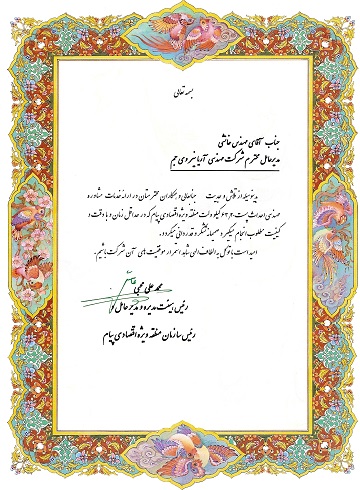 بسمه تعالی
جناب آقای مهندس خانشی
مدیرعامل محترم شرکت مهندسی آریا نیروی بیم
بدینوسیله از تلاش و جدیت جنابعالی و همکاران محترمتان در ارائه خدمات مشاوره و
مهندسی احداث پست ۶۳/۲۰ کیلوولت منطقه ویژه اقتصادی پیام که در حداقل زمان و با دقت و
کیفیت مطلوب انجام میگیرد صمیمانه تشکر و قدردانی میگردد.
امید است با توکل به الطاف الهی شاهد استمرار موفقیت های آن شرکت باشیم.
محمد علی محبی
رئیس هیئت مدیره و مدیر عامل
رئیس سازمان منطقه ویژه اقتصادی پیام